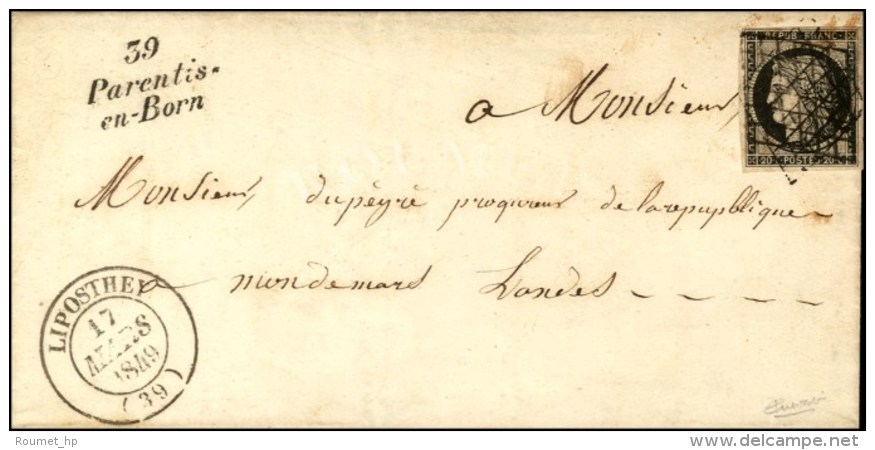 39
Parentis-
en-Born
a Monsieur
REPUB. FRANC.
20 POSTE 20
Monsieur dupéyré proqureur de la repupblique
a mondemars Landes
LIPOSTHEY
17
MARS
1849
(39)
Roumet_hp
©www.delcampe.net